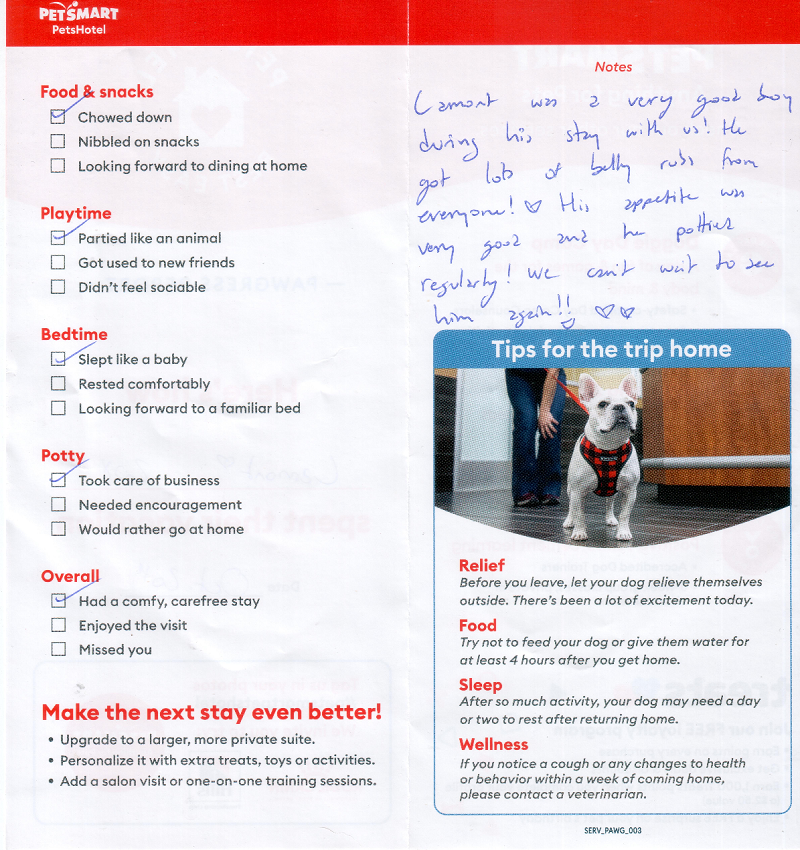 PETSMART
PetsHotel
Food & snacks
Chowed down
Nibbled on snacks
Looking forward to dining at home
Playtime
Partied like an animal
Got used to new friends
Didn't feel sociable
Bedtime
Slept like a baby
Rested comfortably
Looking forward to a familiar bed
Potty
Took care of business
Needed encouragement
Would rather go at home
Overall
Had a comfy, carefree stay
Enjoyed the visit
Missed you
Make the next stay even better!
• Upgrade to a larger, more private suite.
• Personalize it with extra treats, toys or activities.
• Add a salon visit or one-on-one training sessions.
Notes
Lamont was a very good boy
during his stay with us! He
got lots of belly rubs from
everyone! ♡ His appetite was
very good and he potties
regularly! We can't wait to see
him again!! ♡♡
Tips for the trip home
Relief
Before you leave, let your dog relieve themselves
outside. There's been a lot of excitement today.
Food
Try not to feed your dog or give them water for
at least 4 hours after you get home.
Sleep
After so much activity, your dog may need a day
or two to rest after returning home.
Wellness
If you notice a cough or any changes to health
or behavior within a week of coming home,
please contact a veterinarian.
SERV_PAWG_003